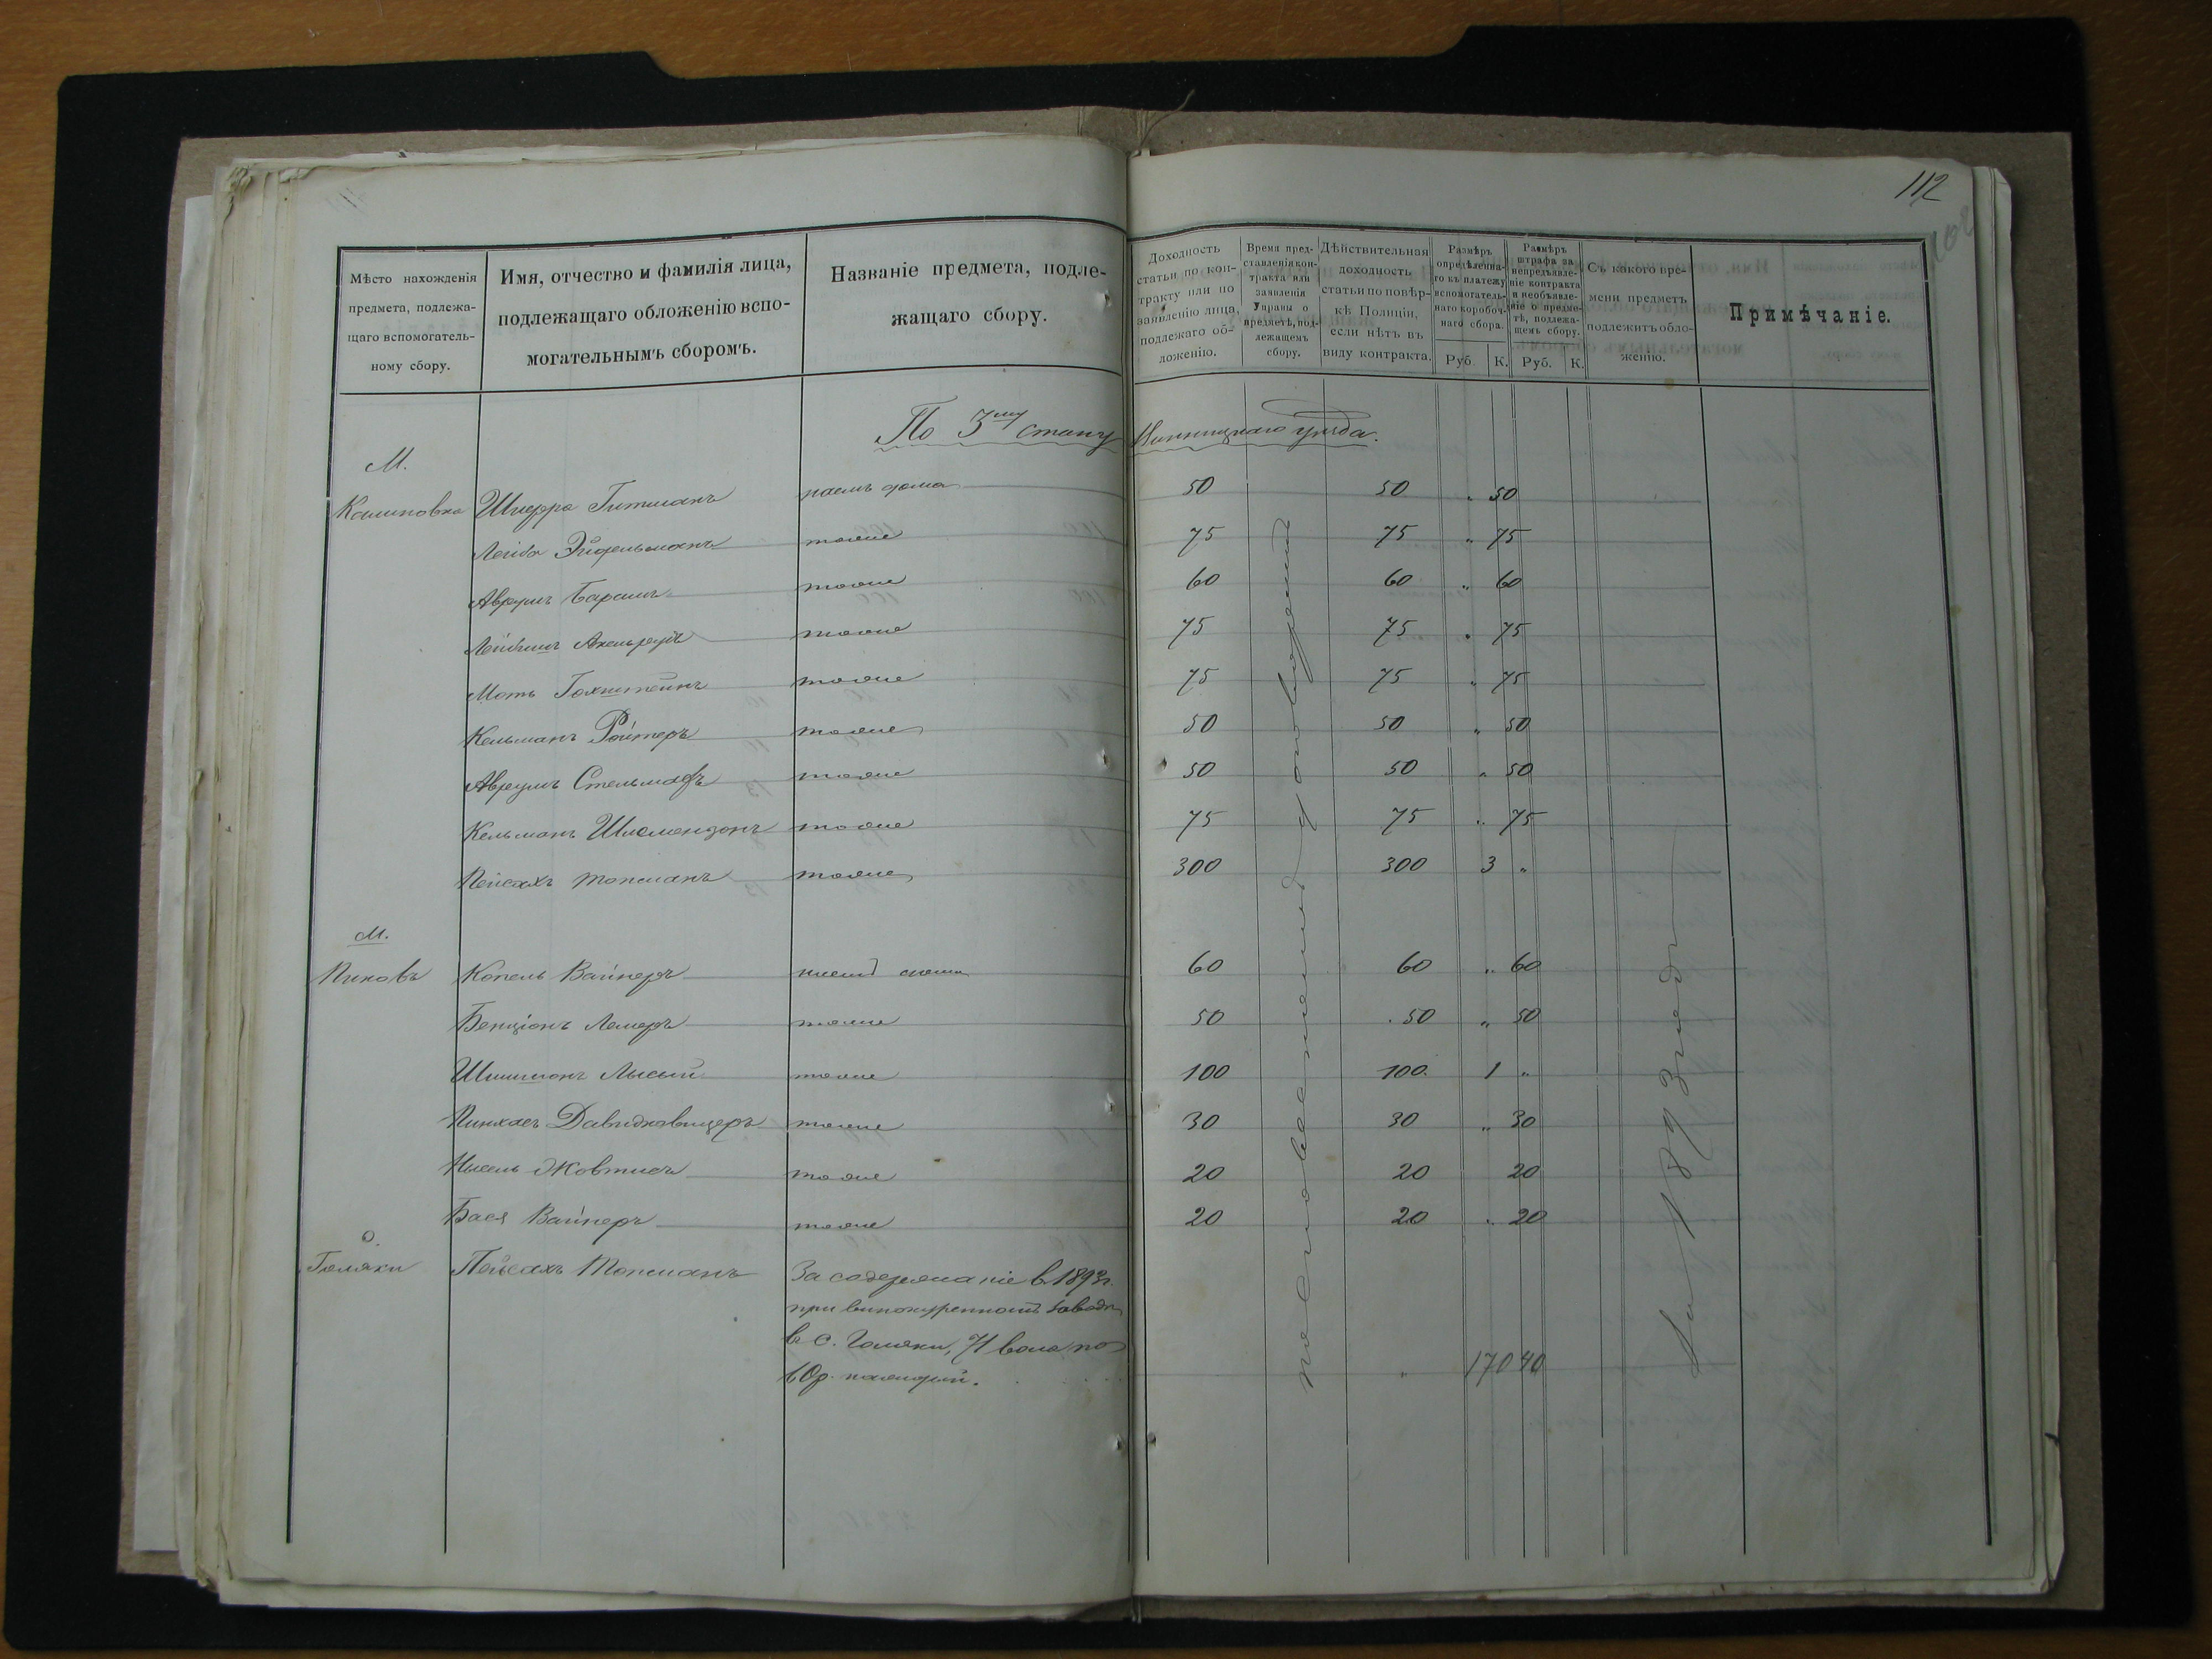 112
Мѣсто нахожденія
предмета, подлежа-
щаго вспомогатель-
ному сбору.
Имя, отчество и фамилія лица,
подлежащаго обложенію вспо-
могательнымъ сборомъ.
Названіе предмета, подле-
жащаго сбору.
Доходность
статьи по кон-
тракту или по
заявленію лица,
подлежаго об-
ложенію.
Время пред-
ставленія кон-
тракта или
заявленія
Управы о
предметѣ, под-
лежащемъ
сбору.
Дѣйствительная
доходность
статьи по повѣр-
кѣ Полиціи,
если нѣтъ въ
виду контракта.
Размѣръ
опредѣленна-
го къ платежу
вспомогатель-
наго коробоч-
наго сбора.
Руб. К.
Размѣръ
штрафа за
непредъявле-
ніе контракта
и необъявле-
ніе о предме-
тѣ, подлежа-
щемъ сбору.
Руб. К.
Съ какого вре-
мени предметъ
подлежитъ обло-
женію.
Примѣчаніе.
По 3му стану Винницкаго уѣзда.
М.
Калиновка Шифра Гитманъ наемъ дома 50 50 " 50
Лейба Эйдельманъ тоже 75 75 " 75
Аврумъ Барашъ тоже 60 60 " 60
Лейбишъ Аксельрудъ тоже 75 75 " 75
Моть Гохштейнъ тоже 75 75 " 75
Кельманъ Ройтеръ тоже 50 50 " 50
Аврумъ Стельмахъ тоже 50 50 " 50
Кельманъ тоже 75 75 " 75
Пейсахъ Топманъ тоже 300 300 3 "
М.
Пиковъ Копель Вайнеръ 60 60 " 60
Бенціонъ Лемеръ тоже 50 50 " 50
Шимшонъ Лысый тоже 100 100 1 "
Пинхасъ Давидковицеръ тоже 30 30 " 30
Нысель Жовтисъ тоже 20 20 20
Бася Вайнеръ тоже 20 20 " 20
С.
Голяки Пейсахъ Топманъ За содержаніе в 1893г.
при винокуренномъ заводѣ
в с. Голяки, 71 вола по
каждый. " 170 40
Съ 1893 года